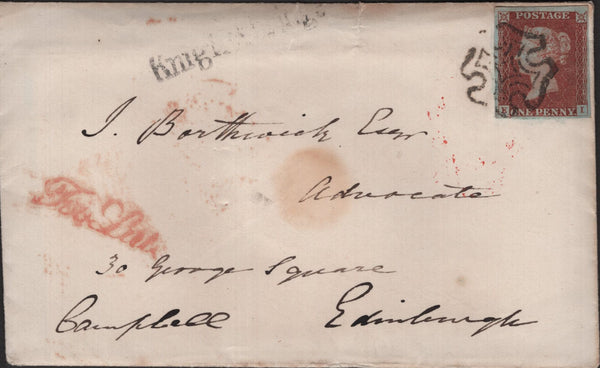 Knightsbridge
POSTAGE
ONE PENNY
J. Borthwick Esqr
Advocate
Too Late
30 George Square
Campbell Edinburgh